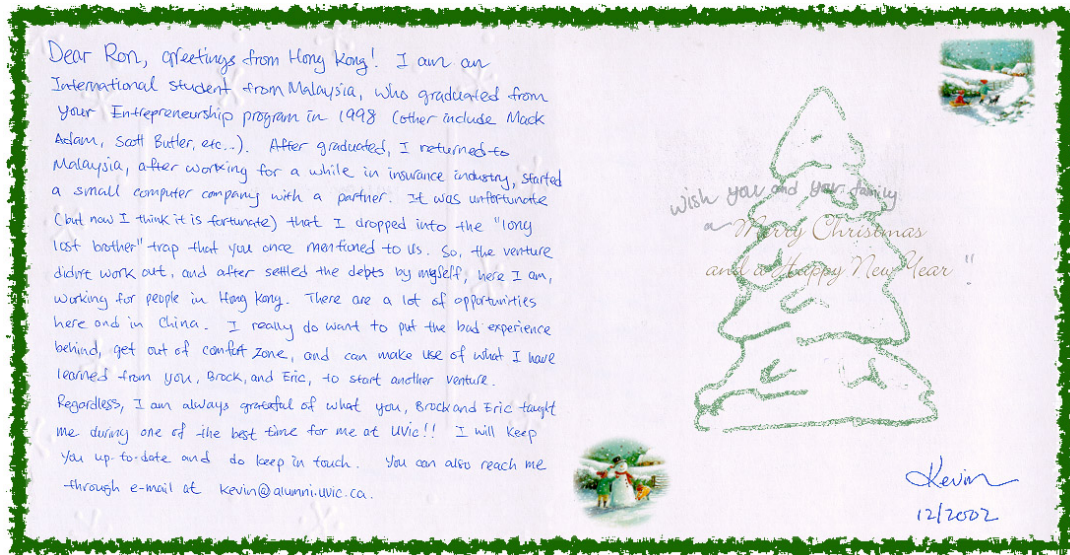 Dear Ron, greetings from Hong Kong! I am an
International student from Malaysia, who graduated from
your Entrepreneurship program in 1998 (other include Mack
Adam, Scott Butler, etc...). After graduated, I returned to
Malaysia, after working for a while in insurance industry, started
a small computer company with a partner. It was unfortunate
(but now I think it is fortunate) that I dropped into the "long
lost brother" trap that you once mentioned to us. So, the venture
didn't work out, and after settled the debts by myself, here I am,
working for people in Hong Kong. There are a lot of opportunities
here and in China. I really do want to put the bad experience
behind, get out of comfort zone, and can make use of what I have
learned from you, Brock, and Eric, to start another venture.
Regardless, I am always grateful of what you, Brock and Eric taught
me during one of the best time for me at UVic!! I will keep
you up-to-date and do keep in touch. You can also reach me
through e-mail at kevin@alumni.uvic.ca.
wish you and your family
a Merry Christmas
and a Happy New Year"
Kevin
12/2002